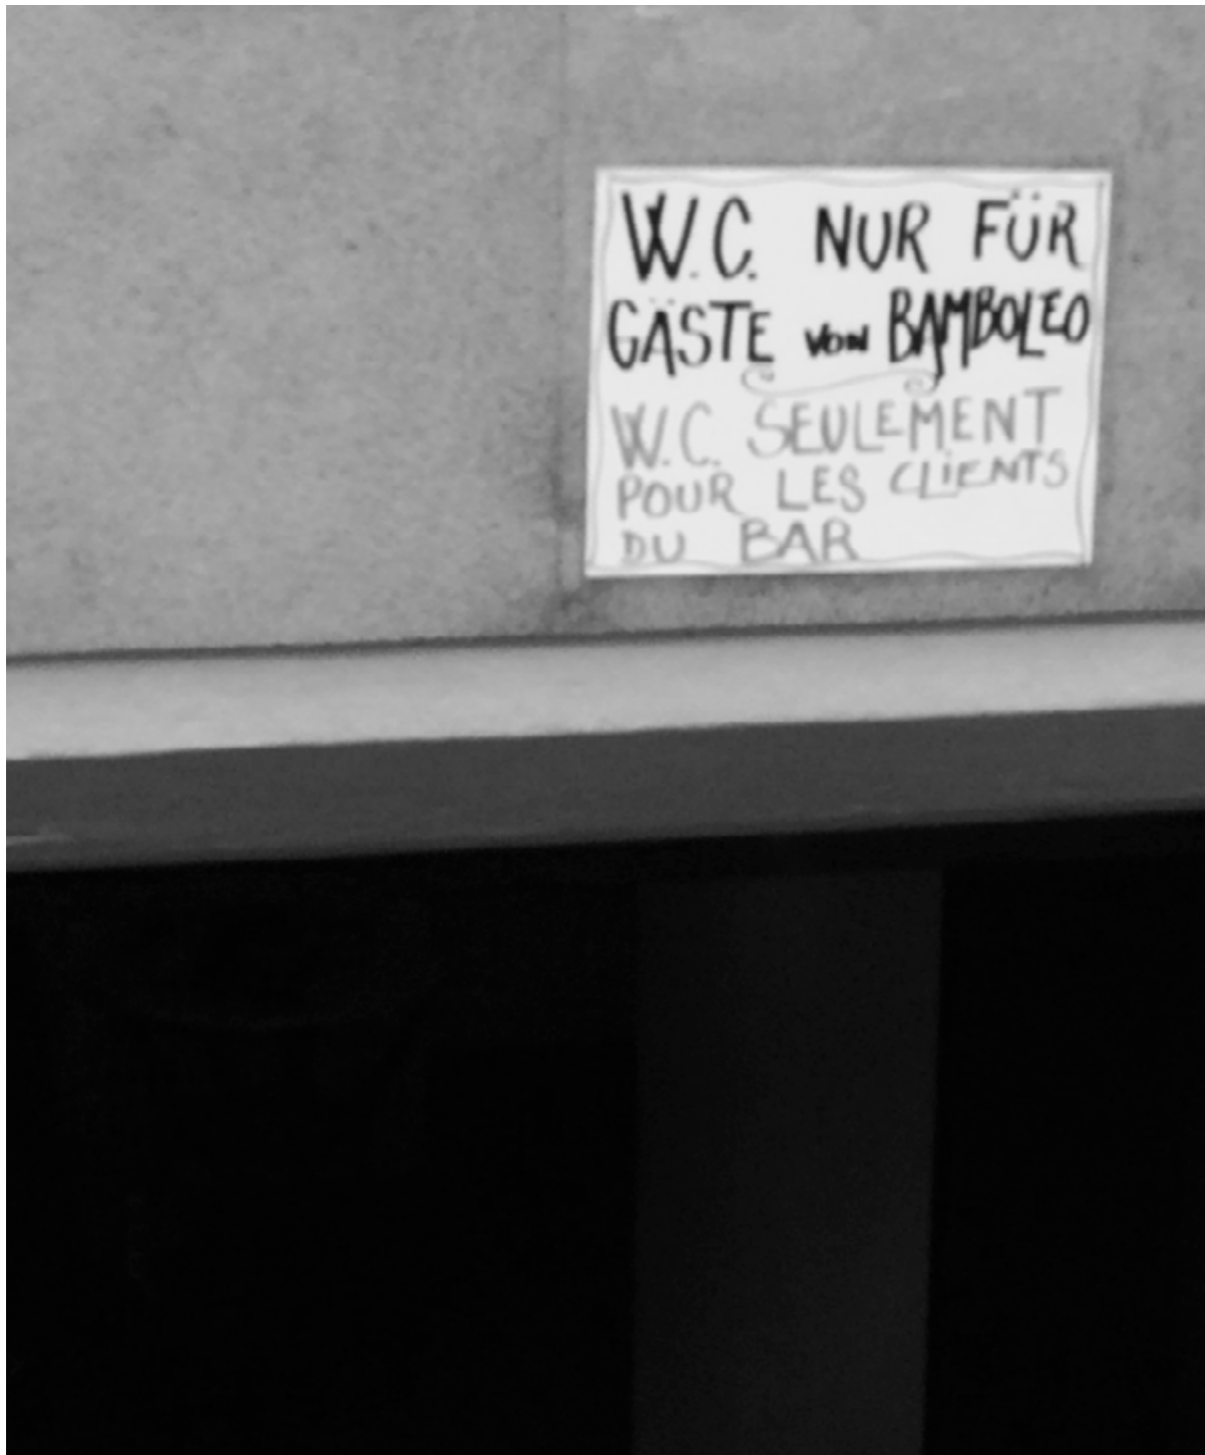 W.C. NUR FÜR
GÄSTE VON BAMBOLEO
W.C. SEULEMENT
POUR LES CLIENTS
DU BAR